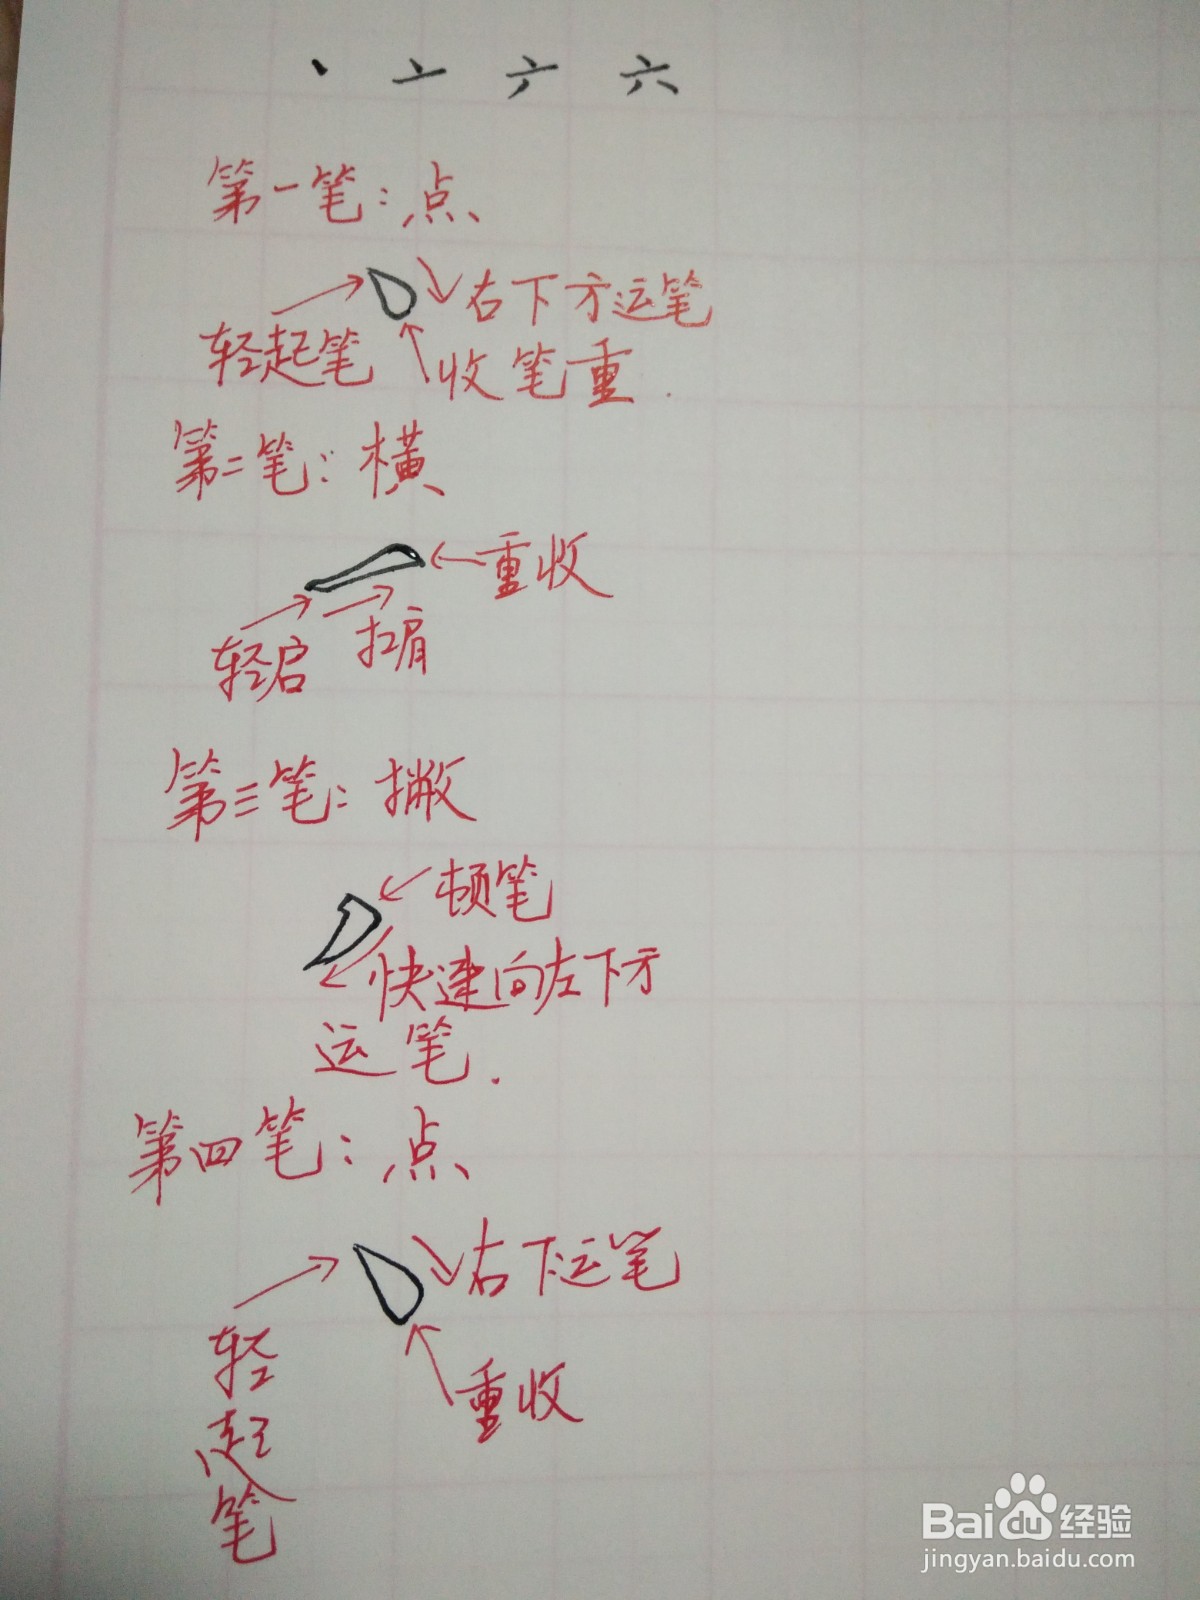 丶 亠 六
第一笔:点
右下方运笔
轻起笔
收笔重.
第二笔:横
重收
轻启 扛肩
第三笔:撇
顿笔
快速向左下方
运笔.
第四笔:点
右下运笔
轻起笔
重收
Baidu经验
jingyan.baidu.com